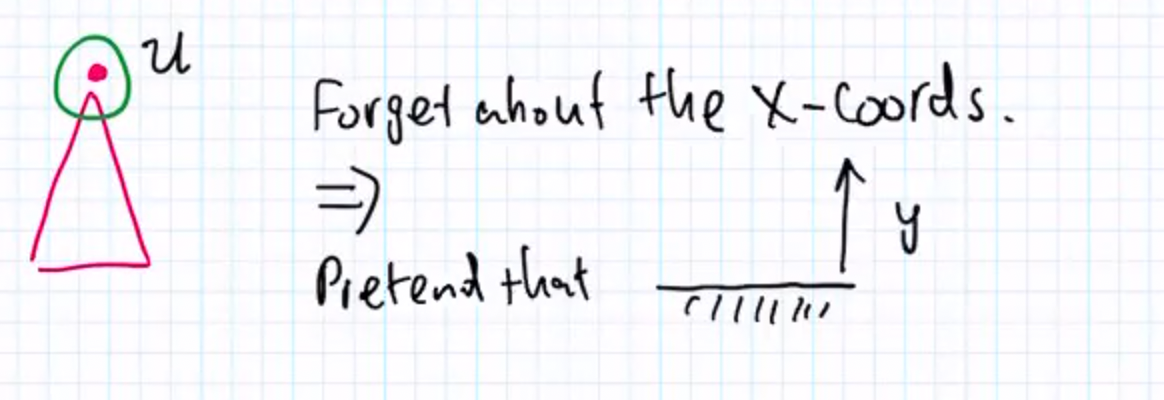 U
Forget about the x-coords.
⇒
Pretend that
y